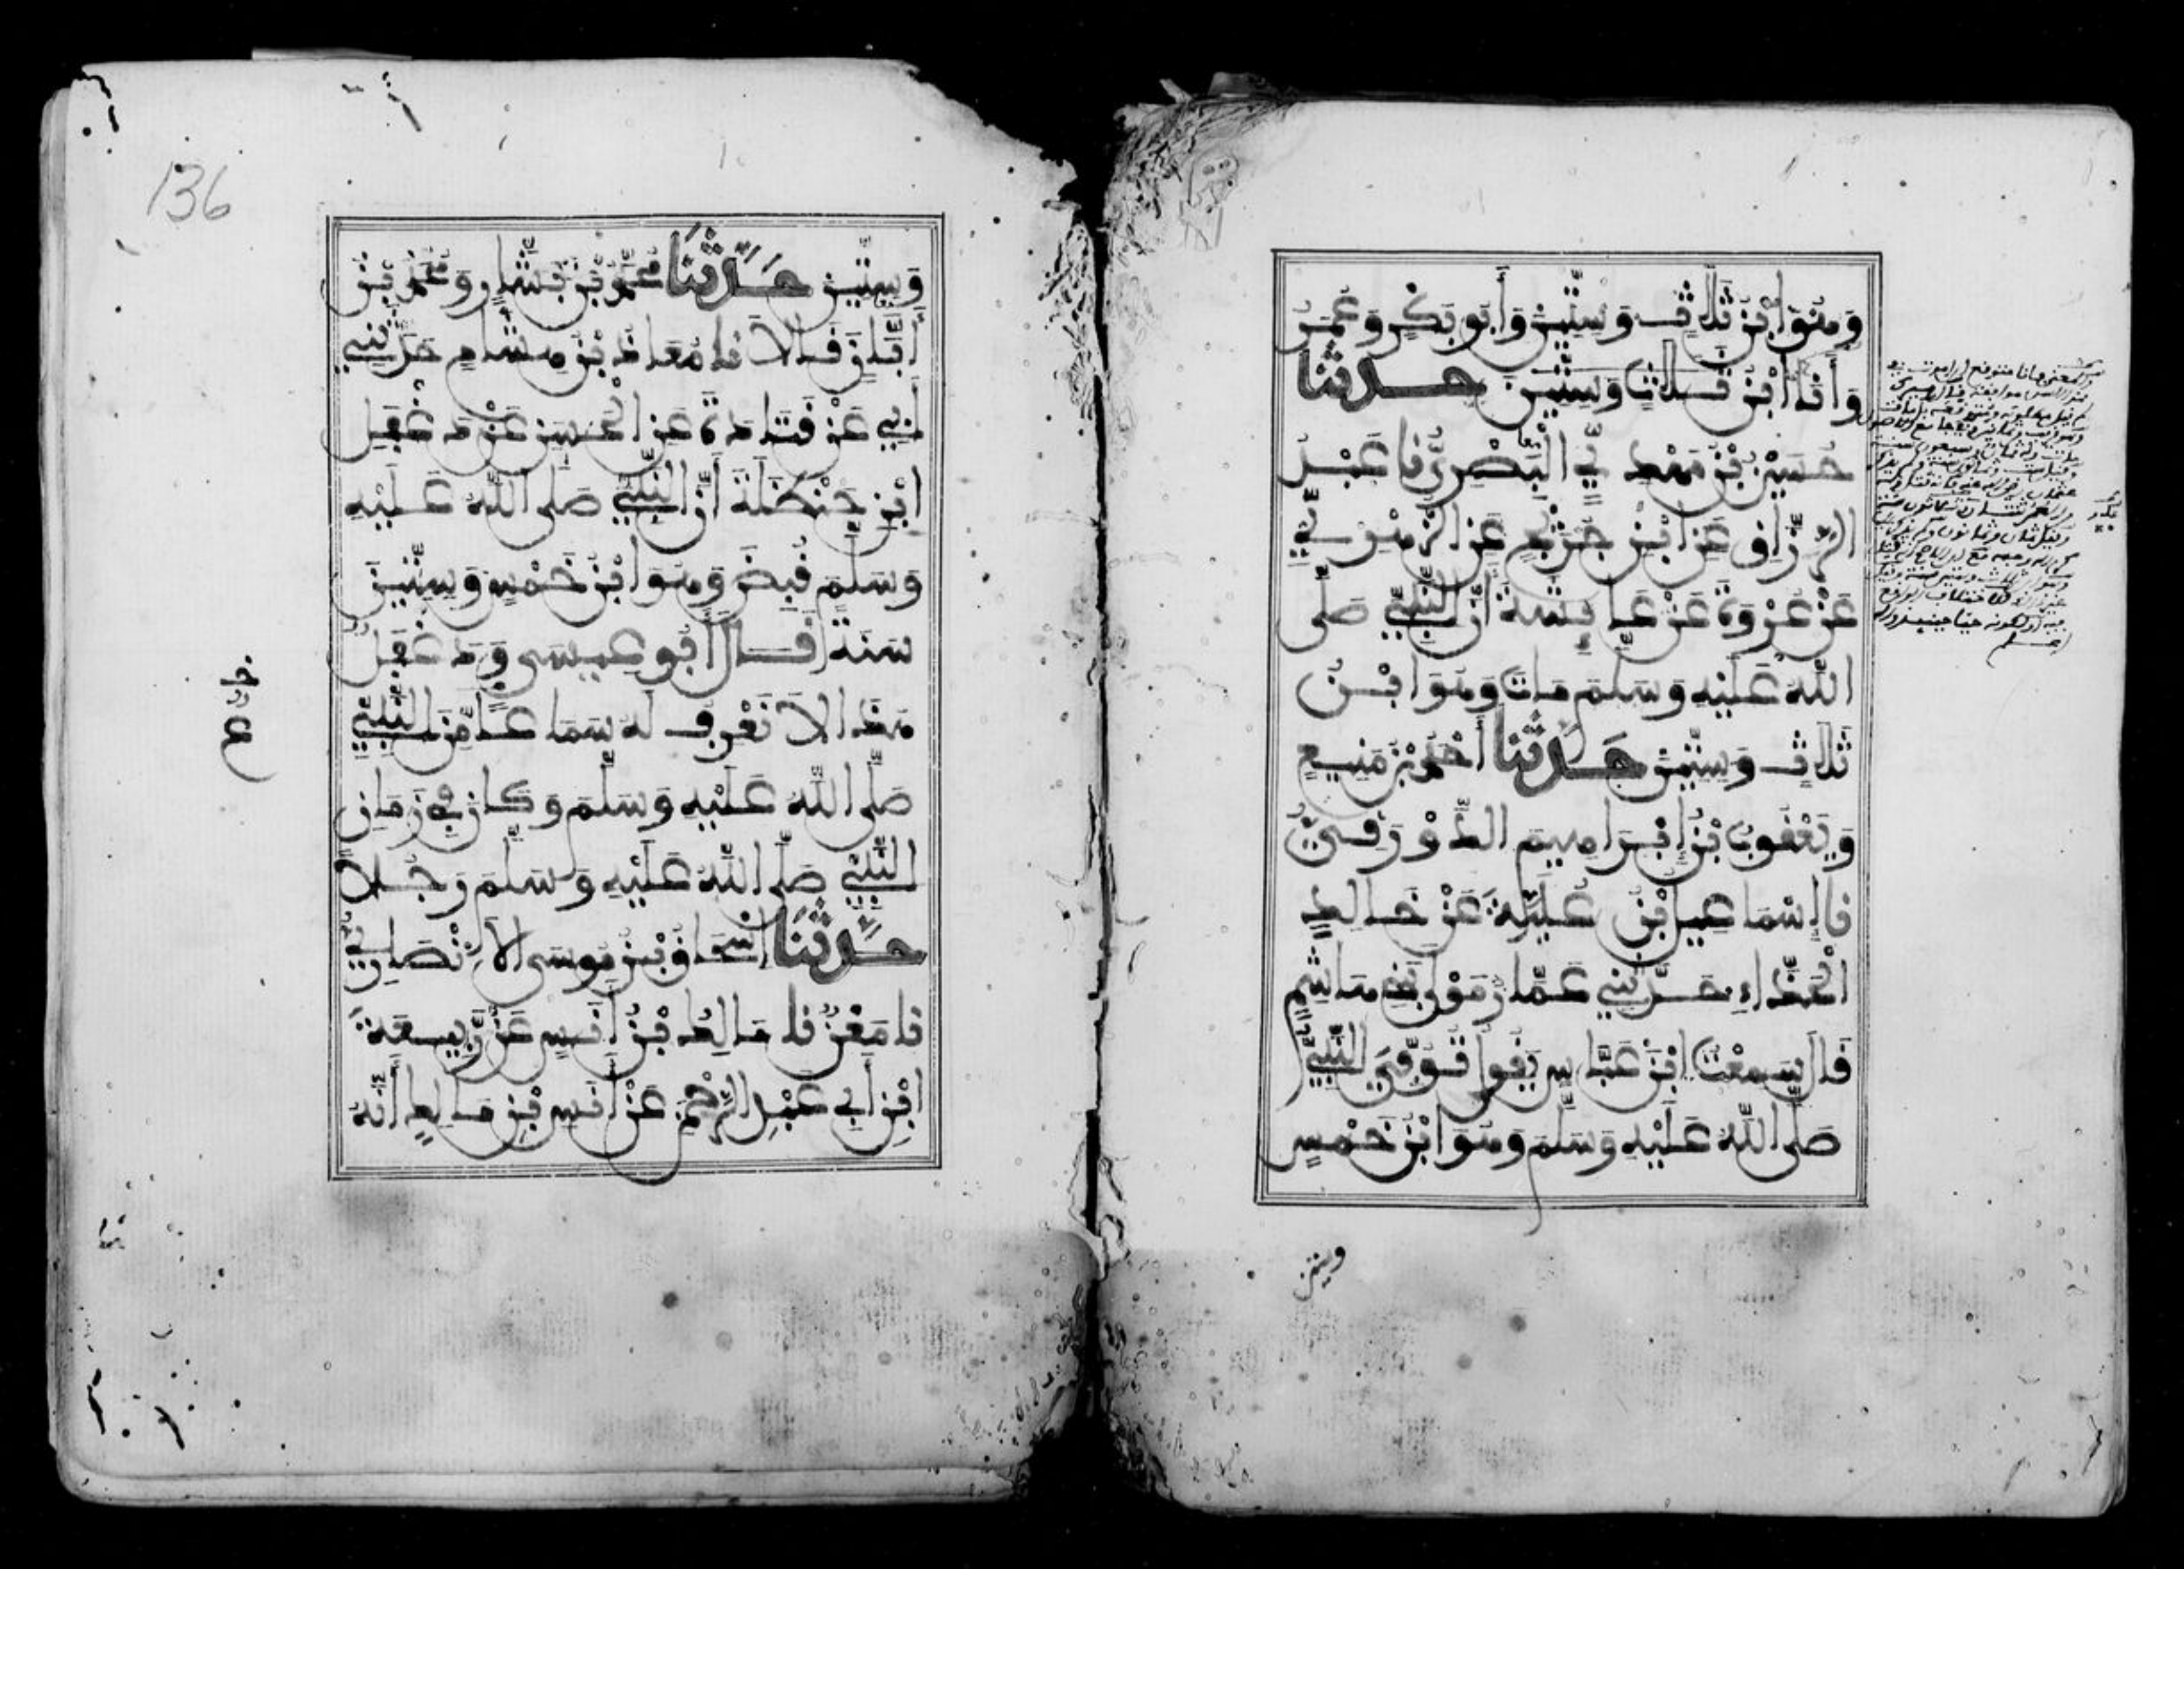 وَهُوَ ابْنُ ثَلَاثٍ وَسِتِّينَ وَأَبُو بَكْرٍ وَعُمَرُ
وَأَنَا ابْنُ ثَلَاثٍ وَسِتِّينَ حَدَّثَنَا
حُسَيْنُ بْنُ مَهْدِيٍّ الْبَصْرِيُّ نا عَبْدُ
الرَّزَّاقِ عَنِ ابْنِ جُرَيْجٍ عَنِ الزُّهْرِيِّ
عَنْ عُرْوَةَ عَنْ عَائِشَةَ أَنَّ النَّبِيَّ صَلَّى
اللَّهُ عَلَيْهِ وَسَلَّمَ مَاتَ وَهُوَ ابْنُ
ثَلَاثٍ وَسِتِّينَ حَدَّثَنَا أَحْمَدُ بْنُ مَنِيعٍ
وَيَعْقُوبُ بْنُ إِبْرَاهِيمَ الدَّوْرَقِيُّ
نا إِسْمَاعِيلُ بْنُ عُلَيَّةَ عَنْ خَالِدٍ
الْحَذَّاءِ حَدَّثَنِي عَمَّارٌ مَوْلَى بَنِي هَاشِمٍ
قَالَ سَمِعْتُ ابْنَ عَبَّاسٍ يَقُولُ تُوُفِّيَ النَّبِيُّ
صَلَّى اللَّهُ عَلَيْهِ وَسَلَّمَ وَهُوَ ابْنُ خَمْسٍ
وستين
136
وَسِتِّينَ حَدَّثَنَا مُحَمَّدُ بْنُ بَشَّارٍ وَمُحَمَّدُ بْنُ
أَبَانٍ قَالَا نا مُعَاذُ بْنُ هِشَامٍ حَدَّثَنِي
أَبِي عَنْ قَتَادَةَ عَنِ الْحَسَنِ عَنْ دَغْفَلِ
ابْنِ حَنْظَلَةَ أَنَّ النَّبِيَّ صَلَّى اللَّهُ عَلَيْهِ
وَسَلَّمَ قُبِضَ وَهُوَ ابْنُ خَمْسٍ وَسِتِّينَ
سَنَةً قَالَ أَبُو عِيسَى وَدَغْفَلُ
هَذَا لَا نَعْرِفُ لَهُ سَمَاعًا مِّنَ النَّبِيِّ
صَلَّى اللَّهُ عَلَيْهِ وَسَلَّمَ وَكَانَ فِي زَمَانِ
النَّبِيِّ صَلَّى اللَّهُ عَلَيْهِ وَسَلَّمَ رَجُلًا
حَدَّثَنَا إِسْحَاقُ بْنُ مُوسَى الْأَنْصَارِيُّ
نا مَعْنٌ نا مَالِكُ بْنُ أَنَسٍ عَنْ رَّبِيعَةَ
ابْنِ أَبِي عَبْدِ الرَّحْمَنِ عَنْ أَنَسِ بْنِ مَالِكٍ أَنَّهُ